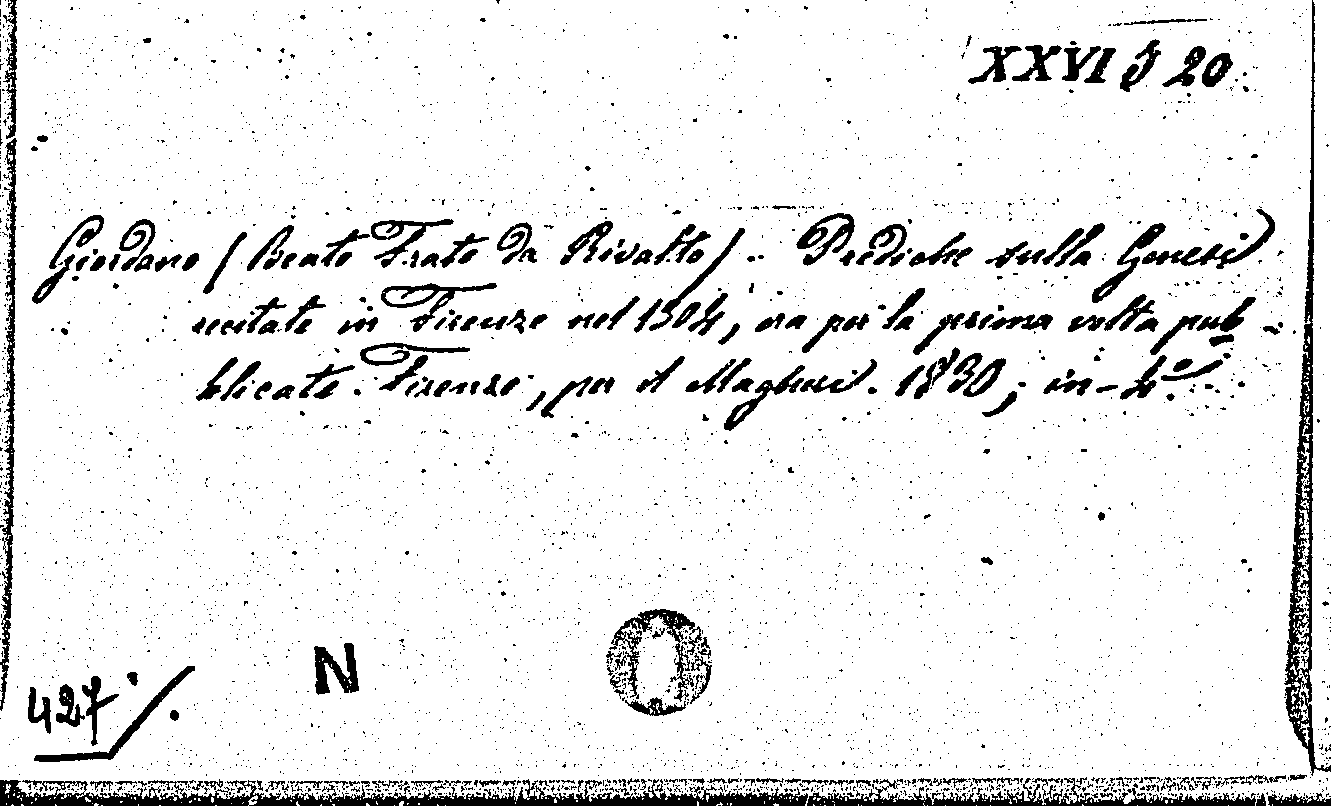 XXVI J 20
Giordano (Beato Frate da Rivalto). - Prediche sulla Genesi
recitate in Firenze nel 1304, ora per la prima volta pub-
blicate. Firenze, per il Magheri. 1830; in-4.º
427
N